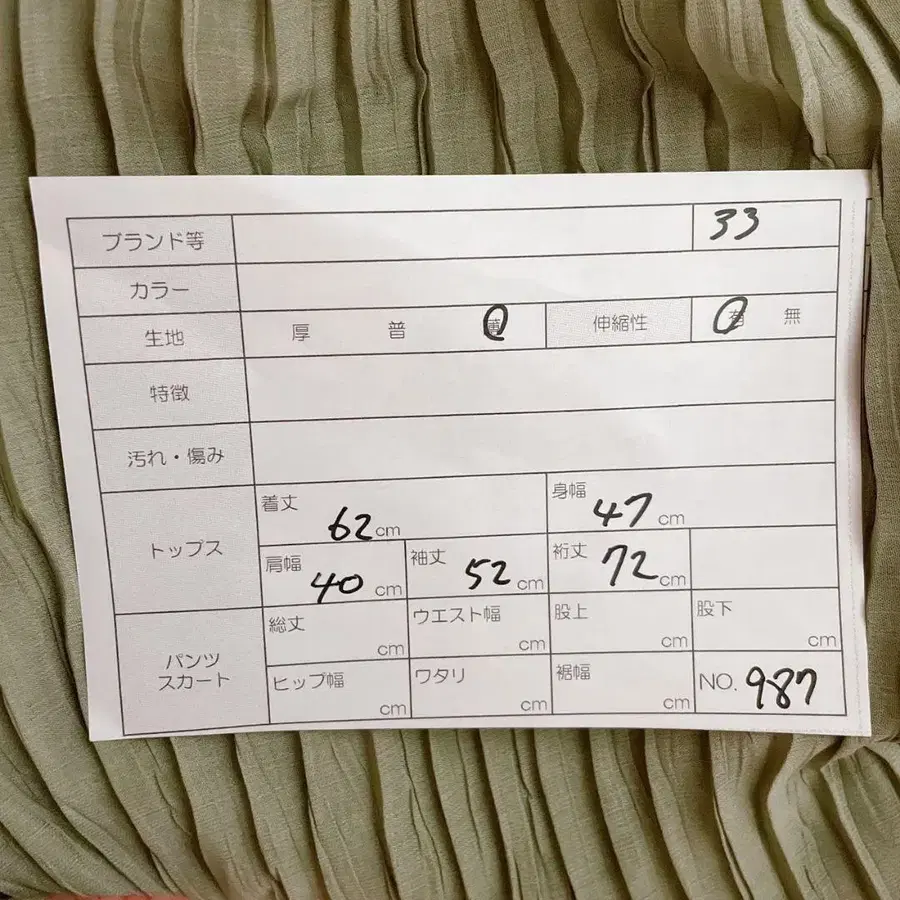 ブランド等 33
カラー
生地 厚 普 薄 伸縮性 有 無
特徴
汚れ・傷み
トップス 着丈 62cm 身幅 47cm
肩幅 40cm 袖丈 52cm 裄丈 72cm
パンツ スカート 総丈 cm ウエスト幅 cm 股上 cm 股下 cm
ヒップ幅 cm ワタリ cm 裾幅 cm NO. 987